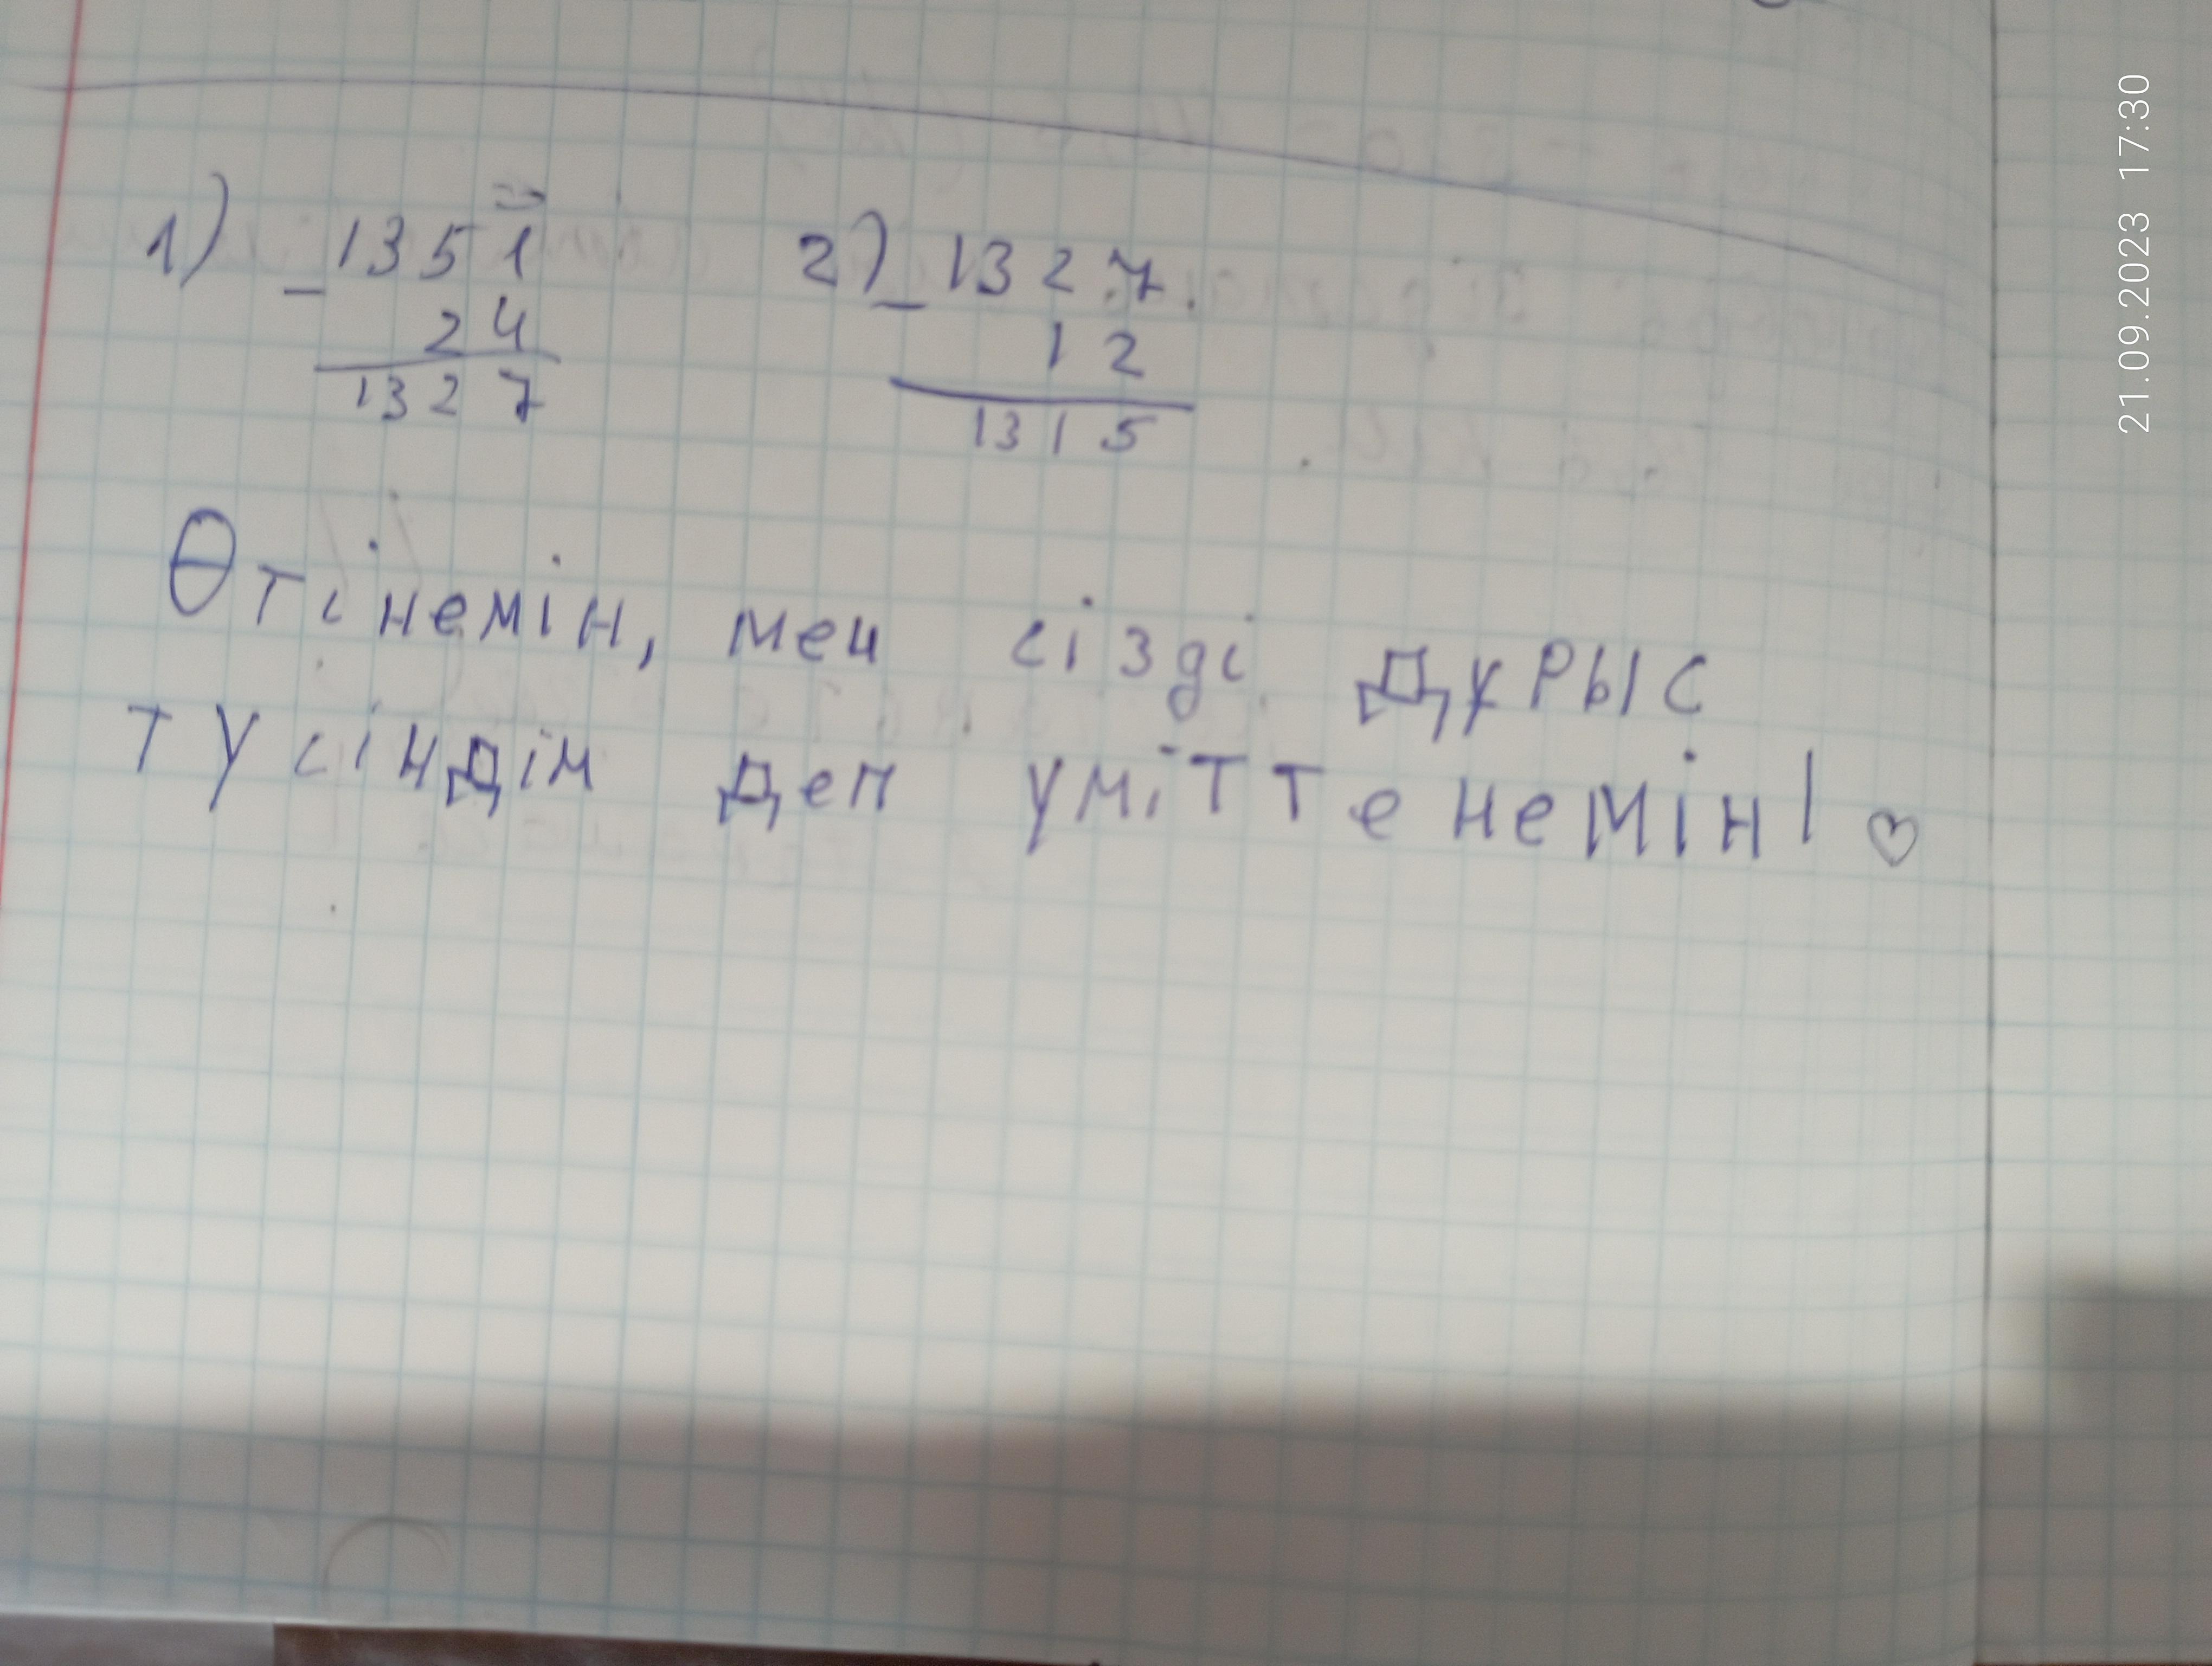 1) _1351 2) _1327.
24 12
1327 1315
Өтінемін, мен сізді дұрыс
түсіндім деп үміттенемін! ♡
21.09.2023 17:30